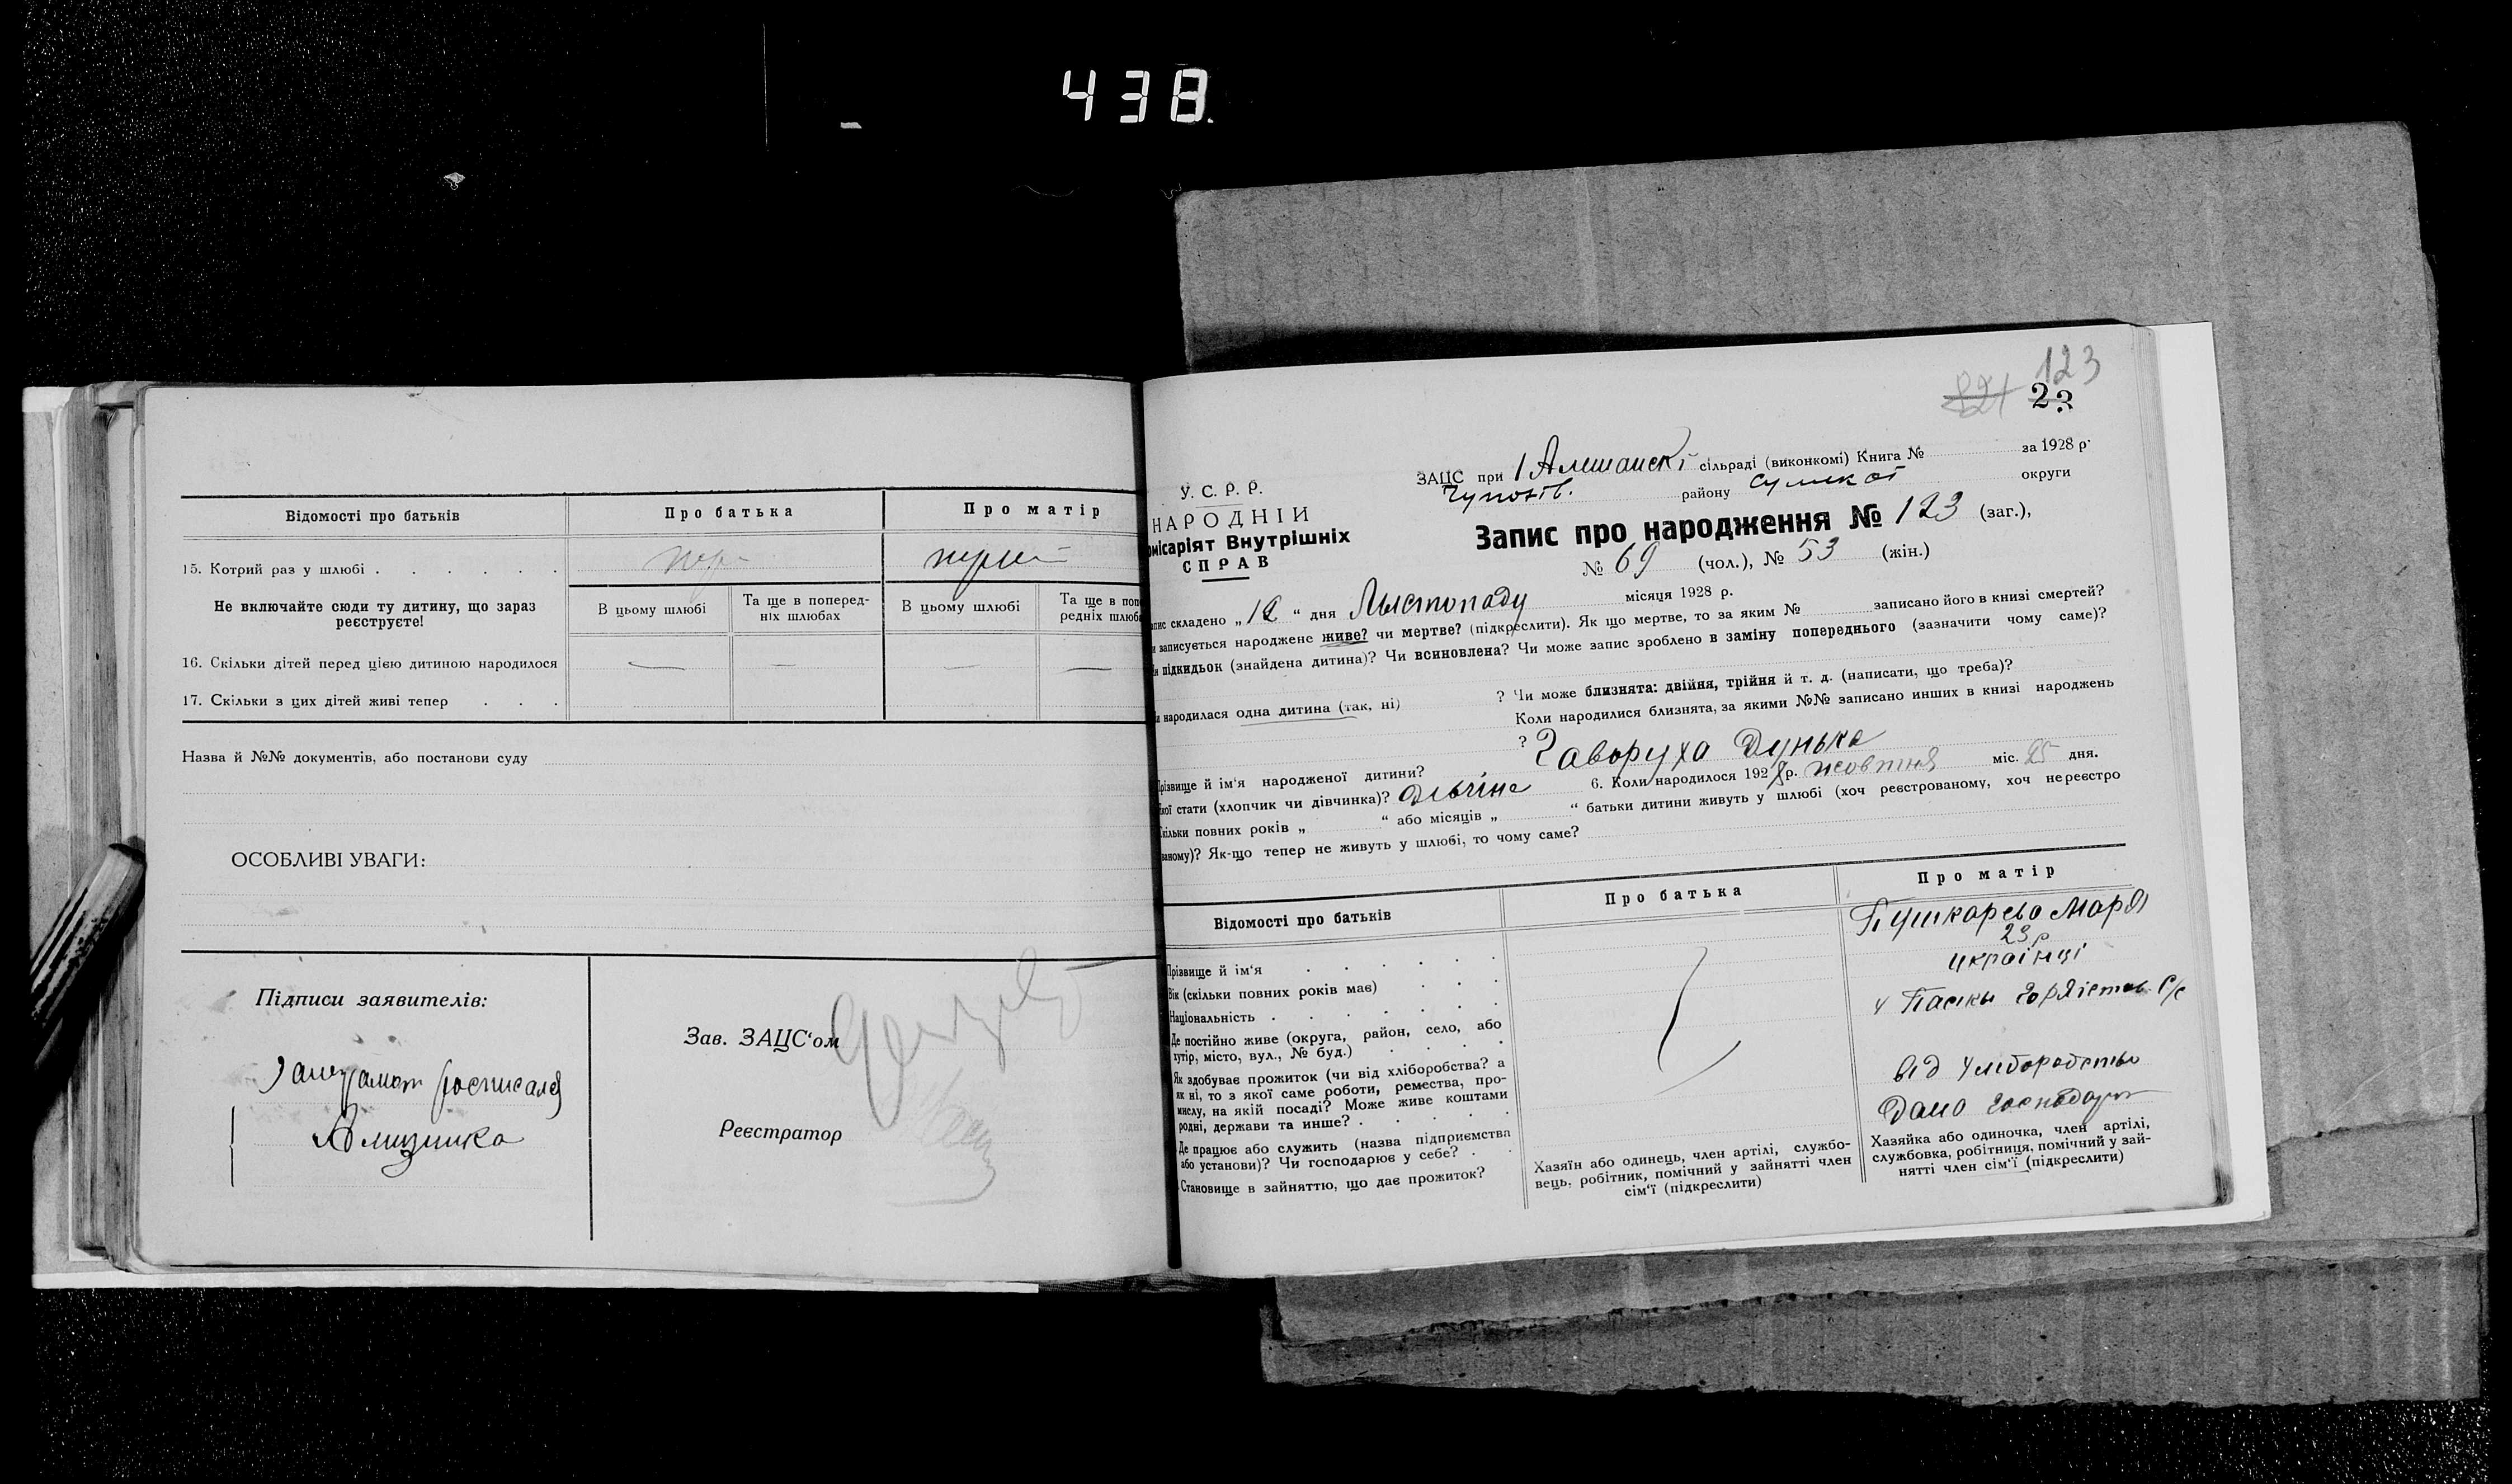 438.
Відомості про батьків
Про батька
Про матір
15. Котрий раз у шлюбі . . . . . .
перший
Не включайте сюди ту дитину, що зараз
реєструєте!
В цьому шлюбі
Та ще в поперед-
ніх шлюбах
В цьому шлюбі
Та ще в поп
редніх шлюб
16. Скільки дітей перед цією дитиною народилося
— — — —
17. Скільки з цих дітей живі тепер . . .
Назва й №№ документів, або постанови суду
ОСОБЛИВІ УВАГИ:
Підписи заявителів:
росписался
Зав. ЗАЦС‘ом
Реєстратор
123
23
У. С. Р. Р.
НАРОДНІЙ
омісаріят Внутрішніх
СПРАВ
ЗАЦС при сільраді (виконкомі) Книга № за 1928 р.
району округи
Запис про народження № 123 (заг.),
№ 69 (чол.), № 53 (жін.)
апис складено „ “ дня Листопаду місяця 1928 р.
и записується народжене живе? чи мертве? (підкреслити). Як що мертве, то за яким № записано його в книзі смертей?
и підкидьок (знайдена дитина)? Чи всиновлена? Чи може запис зроблено в заміну попереднього (зазначити чому саме)?
? Чи може близнята: двійня, трійня й т. д. (написати, що треба)?
и народилася одна дитина (так, ні)
Коли народилися близнята, за якими №№ записано инших в книзі народжень
? Говоруха Дунька
Прізвище й ім‘я народженої дитини?
кої стати (хлопчик чи дівчинка)? 6. Коли народилося 1928 р. жовтня міс. 25 дня.
кільки повних років „ “ або місяців „ “ батьки дитини живуть у шлюбі (хоч реєстрованому, хоч нереєстро
ваному)? Як-що тепер не живуть у шлюбі, то чому саме?
Відомості про батьків
Про батька
Про матір
Прізвище й ім‘я . . . . . .
Пушкарьо Марія
Вік (скільки повних років має) . . .
23 р
Національність . . . . . . .
україnці
Де постійно живе (округа, район, село, або
хутір, місто, вул., № буд.) . . . .
Як здобуває прожиток (чи від хліборобства? а
як ні, то з якої саме роботи, ремества, про-
мислу, на якій посаді? Може живе коштами
родні, держави та инше? . . . . .
від хліборобства
Де працює або служить (назва підприємства
або установи)? Чи господарює у себе? . .
Становище в зайняттю, що дає прожиток?
Хазяїн або одинець, член артілі, службо-
вець, робітник, помічний у зайнятті член
сім‘ї (підкреслити)
Хазяйка або одиночка, член артілі,
службовка, робітниця, помічний у зай-
нятті член сім‘ї (підкреслити)